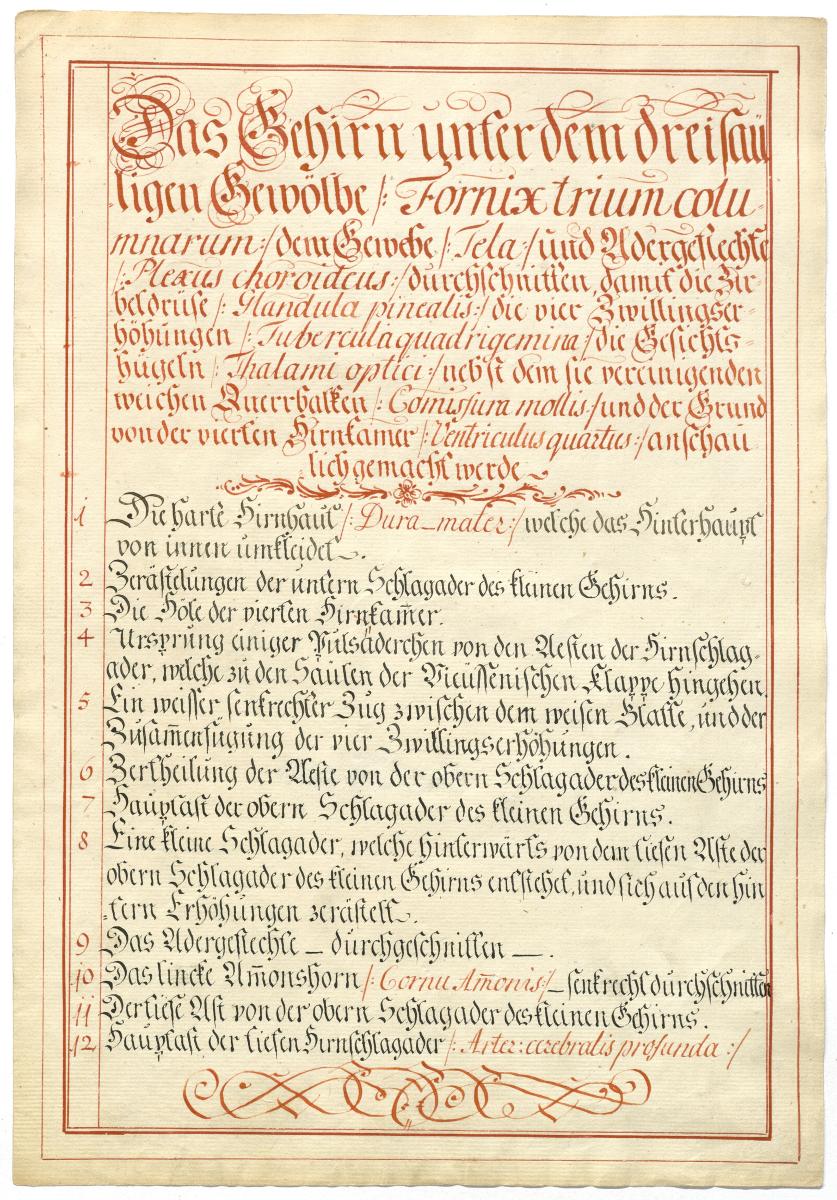 Das Gehirn unter dem dreisäu
ligen Gewölbe /: Fornix trium colu-
mnarum :/ dem Gewebe /: Tela :/ und Adergeflechte
/: Plexus choroideus :/ durchschnitten, damit die Zir-
beldrüse /: Glandula pinealis :/ die vier Zwillingser-
höhungen /: Tubercula quadrigemina :/ die Gesichts-
hügeln /: Thalami optici :/ nebst dem sie vereinigenden
weichen Querrbalken /: Com̄issura mollis :/ und der Grund
von der vierten Hirnkam̄er /: Ventriculus quartus :/ anschau
lich gemacht werde
1 Die harte Hirnhaut /: Dura-mater :/ welche das Hinterhaupt
von innen umkleidet.
2 Zerästelungen der untern Schlagader des kleinen Gehirns.
3 Die Höle der vierten Hirnkam̄er.
4 Ursprung einiger Pulsäderchen von den Aesten der Hirnschlag-
ader, welche zu den Säulen der Vieussenischen Klappe hingehen.
5 Ein weisser senkrechter Zug zwischen dem weisen Blatte, und der
Zusam̄enfugung der vier Zwillingserhöhungen.
6 Zertheilung der Aeste von der obern Schlagader des kleinen Gehirns
7 Hauptast der obern Schlagader des kleinen Gehirns.
8 Eine kleine Schlagader, welche hinterwärts von dem tiefen Aste der
obern Schlagader des kleinen Gehirns entstehet, und sich auf den hin
-tern Erhöhungen zerästelt.
9 Das Adergeflechte – durchgeschnitten –.
10 Das lincke Am̄onshorn /: Cornu Am̄onis :/ – senkrecht durchschnitten
11 Der tiefe Ast von der obern Schlagader des kleinen Gehirns.
12 Hauptast der tiefen Hirnschlagader /: Arter: cerebralis profunda :/